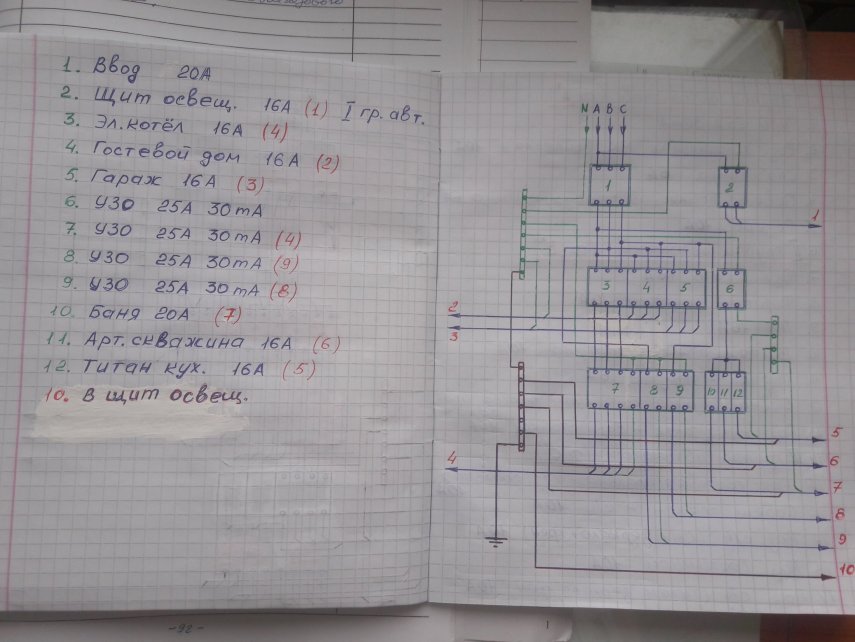 1. Ввод 20А
2. Щит освещ. 16А (1) I гр. авт.
3. Эл.котёл 16А (4)
4. Гостевой дом 16А (2)
5. Гараж 16А (3)
6. УЗО 25А 30mA
7. УЗО 25А 30mA (4)
8. УЗО 25А 30mA (9)
9. УЗО 25А 30mA (8)
10. Баня 20А (7)
11. Арт.скважина 16А (6)
12. Титан кух. 16А (5)
10. В щит освещ.
-92-
N A B C
1 2
1
3 4 5 6
2
3
7 8 9 10 11 12
5
4 6
7
8
9
10